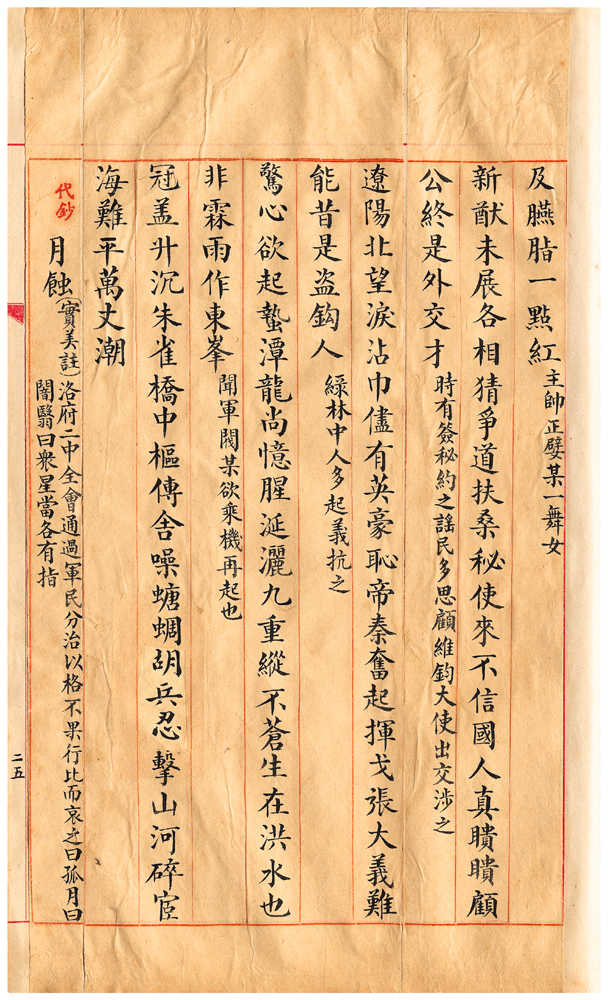 及臙脂一點紅主帥正嬖某一舞女
新猷未展各相猜爭道扶桑秘使來不信國人真瞶瞶顧
公終是外交才時有簽秘約之謠民多思顧維鈞大使出交涉之
遼陽北望淚沾巾儘有英豪恥帝秦奮起揮戈張大義難
能昔是盜鈎人綠林中人多起義抗之
驚心欲起蟄潭龍尚憶腥涎灑九重縱不蒼生在洪水也
非霖雨作東峯聞軍閥某欲乘機再起也
冠盖升沉朱雀橋中樞傳舍噪螗蜩胡兵忍擊山河碎宦
海難平萬丈潮
代鈔
月蝕(實美註)洛府二中全會通過軍民分治以格不果行比而哀之曰孤月曰
闇翳曰衆星當各有指
二五